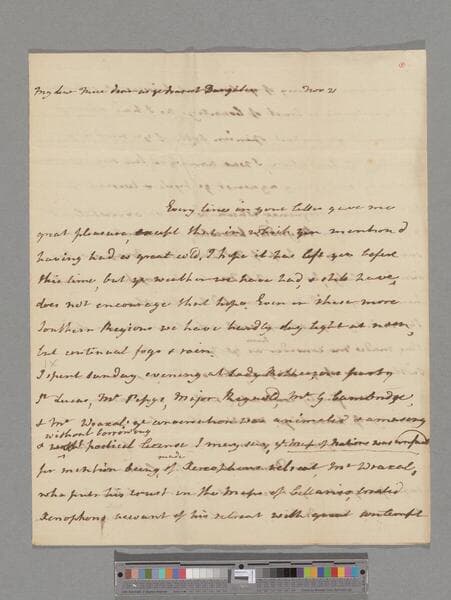 My ... dear ... Nov 21
Every line in your letter gave me
great pleasure, except that in which you mention'd
having had so great cold, I hope it has left you before
this time, but ye weather we have had, & still have,
does not encourage that hope. Even in these more
Southern Regions we have hardly day light at noon,
but continual fogs & rain.
I spent Sunday evening at Lady Rothes, ye party
Sr Lucas, Mr Pepys, Major Rennell, Mr G Cambridge
& Mr Wraxal; ye conversation was animated & amusing
without borrowing
& poetical license I may say, ye map of Nations was
for mention being of Xenophons retreat, Mr Wraxal,
made
who puts his trust in the Maps of Cellarius treated
Xenophons account of his retreat with great contempt